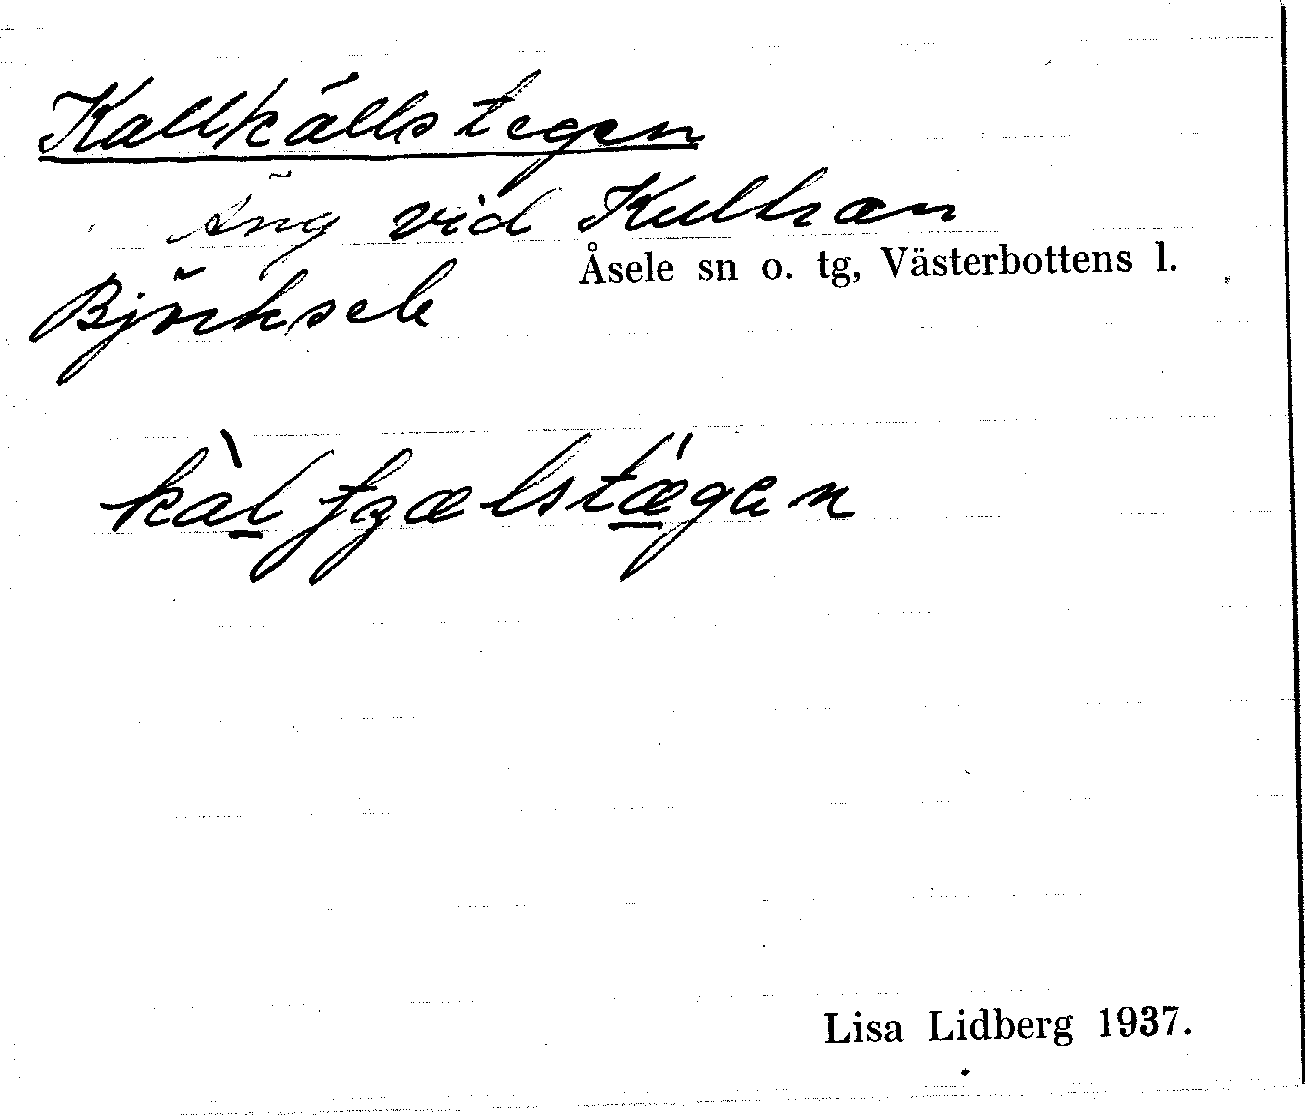 Kallkällstegen
Äng vid Kullran
Åsele sn o. tg, Västerbottens l.
Björksele
kàl fʒælstǽgen
Lisa Lidberg 1937.